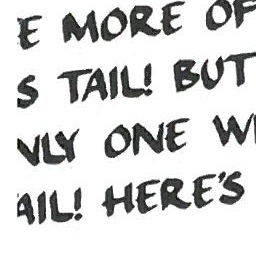 E MORE OF
S TAIL! BUT
NLY ONE WI
AIL! HERE'S